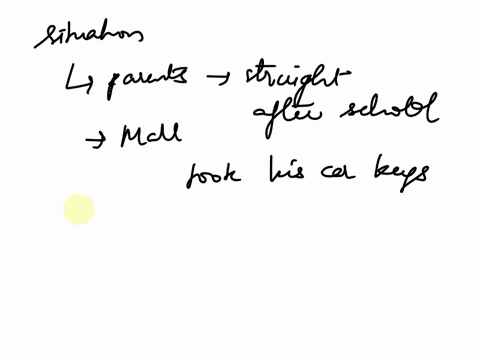 situation
↳ parents → straight
after school
→ Mall
took his car keys